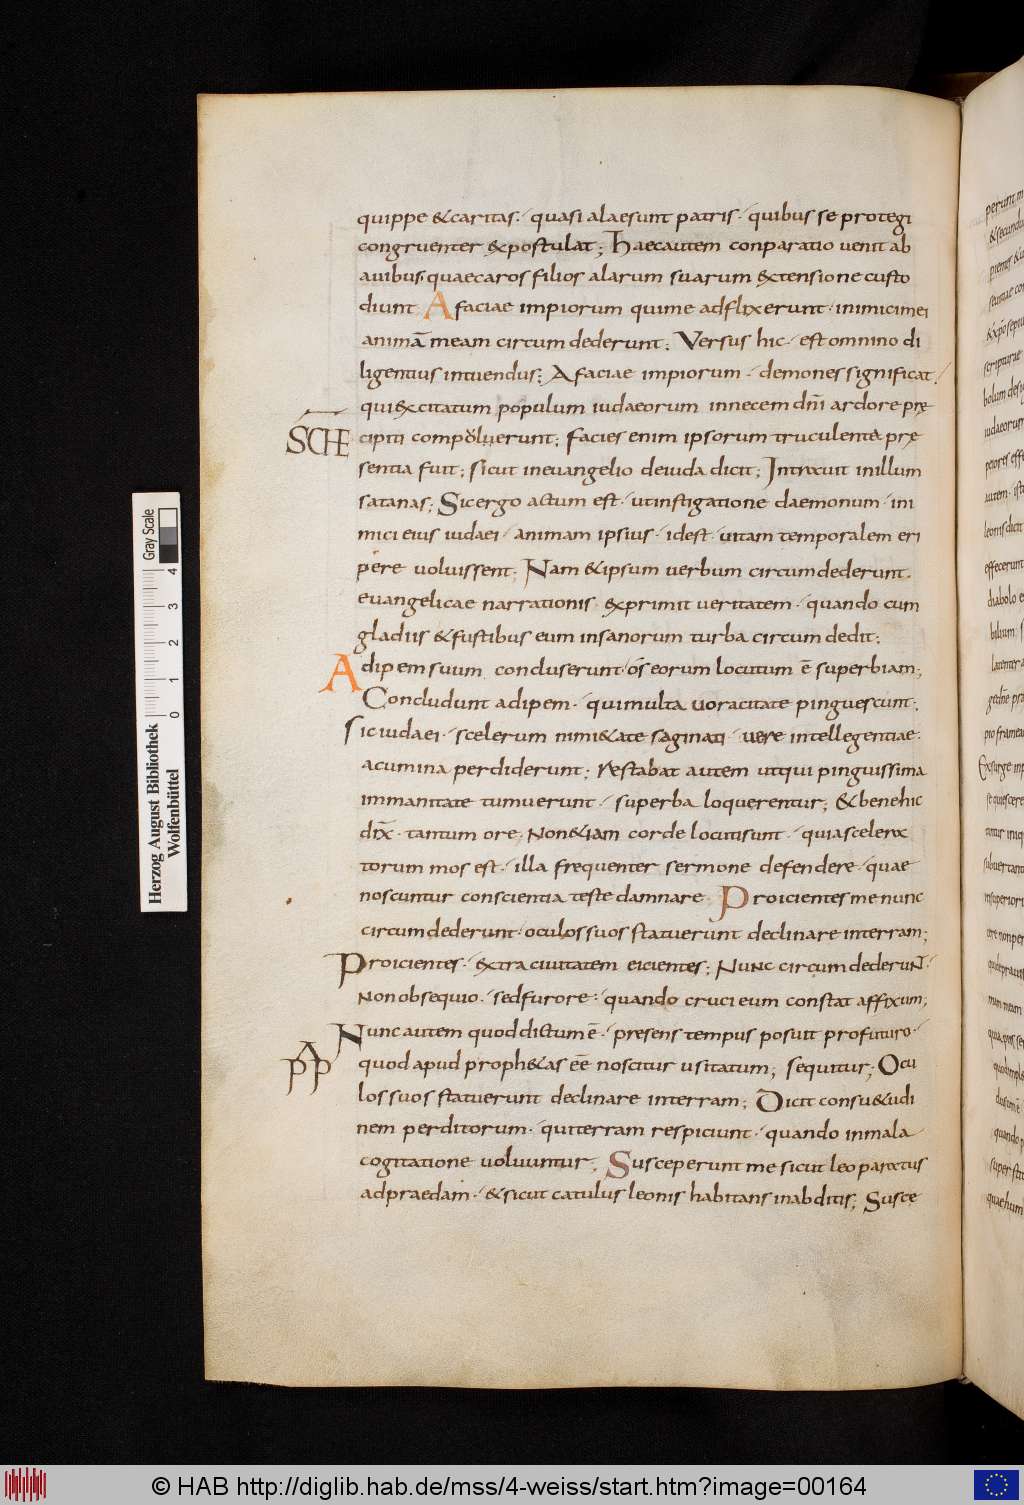 quippe & caritas. quasi alae sunt patris. quibus se protegi
congruenter expostulat; Haec autem conparatio uenit ab
auibus. quae caros filios alarum suarum extensione custo
diunt A facie impiorum qui me adflixerunt. inimici mei
animā meam circumdederunt; Versus hic. est omnino di
ligentius intuendus; A faciae impiorum. demones significat.
qui excitatum populum iudaeorum in necem dn̄i ardore prę
SCHE
cipiti compoluerunt; facies enim ipsorum truculenta prę
sentia fuit; sicut in euangelio de iuda dicit; Intrauit in illum
satanas; Sic ergo actum est. ut instigatione daemonum. ini
mici eius iudaei. animam ipsius. id est. uitam temporalem eri
pere uoluissent; Nam & ipsum uerbum circumdederunt.
euangelicae narrationis exprimit ueritatem. quando cum
gladiis & fustibus eum insanorum turba circumdedit;
Adipem suum concluserunt. os eorum locutum ē superbiam;
Concludunt adipem. qui multa uoracitate pinguescunt;
Sic iudaei. scelerum nimi&ate saginati. uere intellegentiae
acumina perdiderunt; restabat autem ut qui pinguissima
immanitate tumuerunt. superba loquerentur; & bene hic
dix̄. tantum ore; Non &iam corde locuti sunt. quia scelera
torum mos est. illa frequenter sermone defendere. quae
noscuntur conscientia teste damnare Proicientes me nunc
circumdederunt. oculos suos statuerunt declinare in terram;
Proicientes. extra ciuitatem eicientes; Nunc circumdederuN.
Non obsequio. sed furore. quando cruci eum constat affixum;
Nunc autem quod dictum ē. presens tempus posuit pro futuro.
quod apud proph&as eē noscitur usitatum; sequitur; Ocu
los suos statuerunt declinare in terram; Dicit consu&udi
nem perditorum. qui terram respiciunt. quando in mala
cogitatione uoluuntur; Susceperunt me sicut leo paratus
ad praedam. & sicut catulus leonis habitans in abditis; Susce
Herzog August Bibliothek
Wolfenbüttel
0 1 2 3 4
Gray Scale
© HAB http://diglib.hab.de/mss/4-weiss/start.htm?image=00164